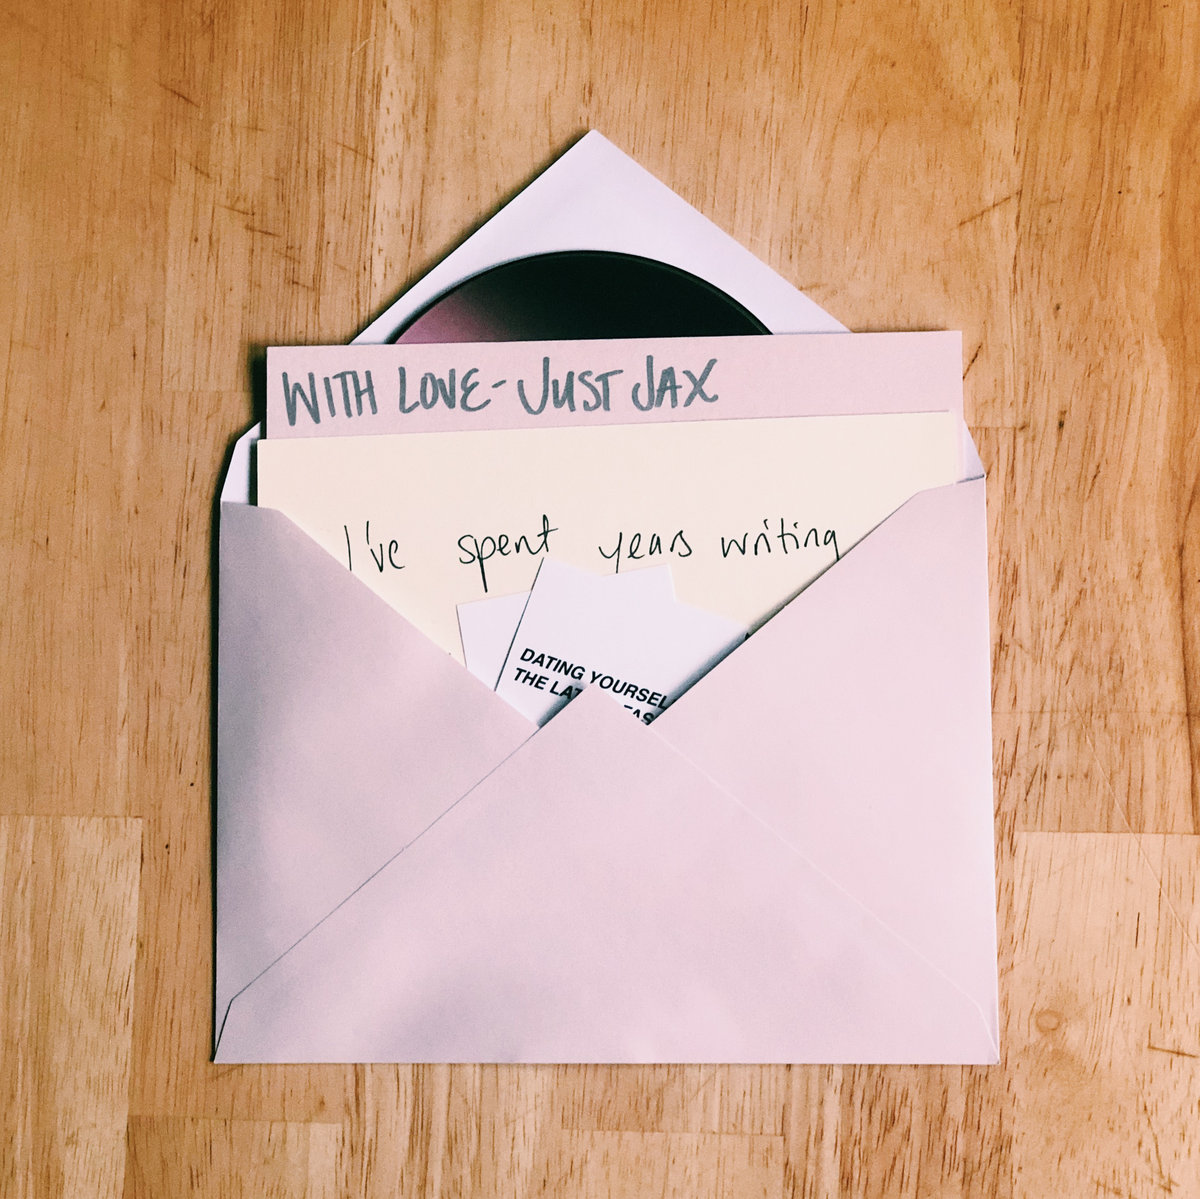 WITH LOVE - JUST JAX
I've spent years writing
DATING YOURSEL
THE LAT